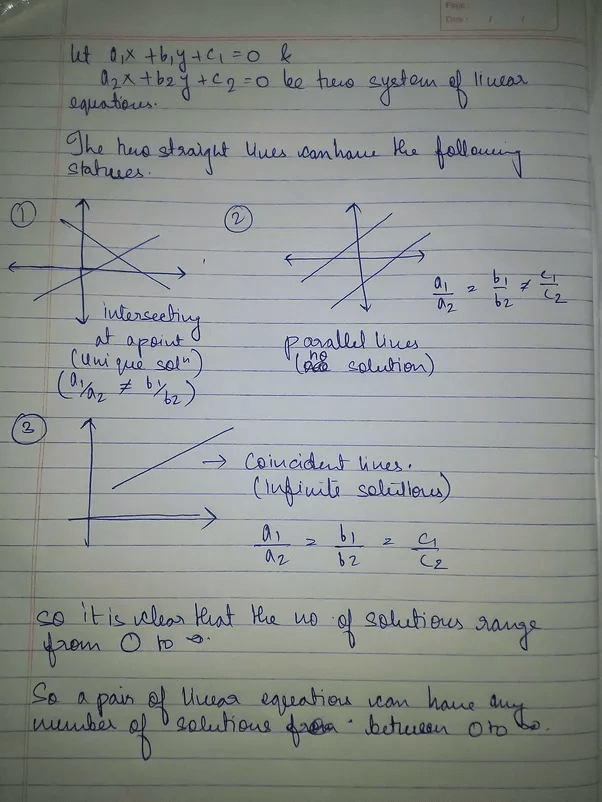 Page :
Date : / /
let a₁x + b₁y + c₁ = 0 &
a₂x + b₂y + c₂ = 0 be two system of linear
equations.
The two straight lines can have the following
statuses.
① ②
a₁/a₂ = b₁/b₂ ≠ c₁/c₂
intersecting
at a point
(unique solⁿ)
(a₁/a₂ ≠ b₁/b₂)
parallel lines
(no solution)
③
→ Coincident lines.
(Infinite solutions)
a₁/a₂ = b₁/b₂ = c₁/c₂
So it is clear that the no of solutions range
from 0 to ∞.
So a pair of linear equations can have any
number of solutions between 0 to ∞.